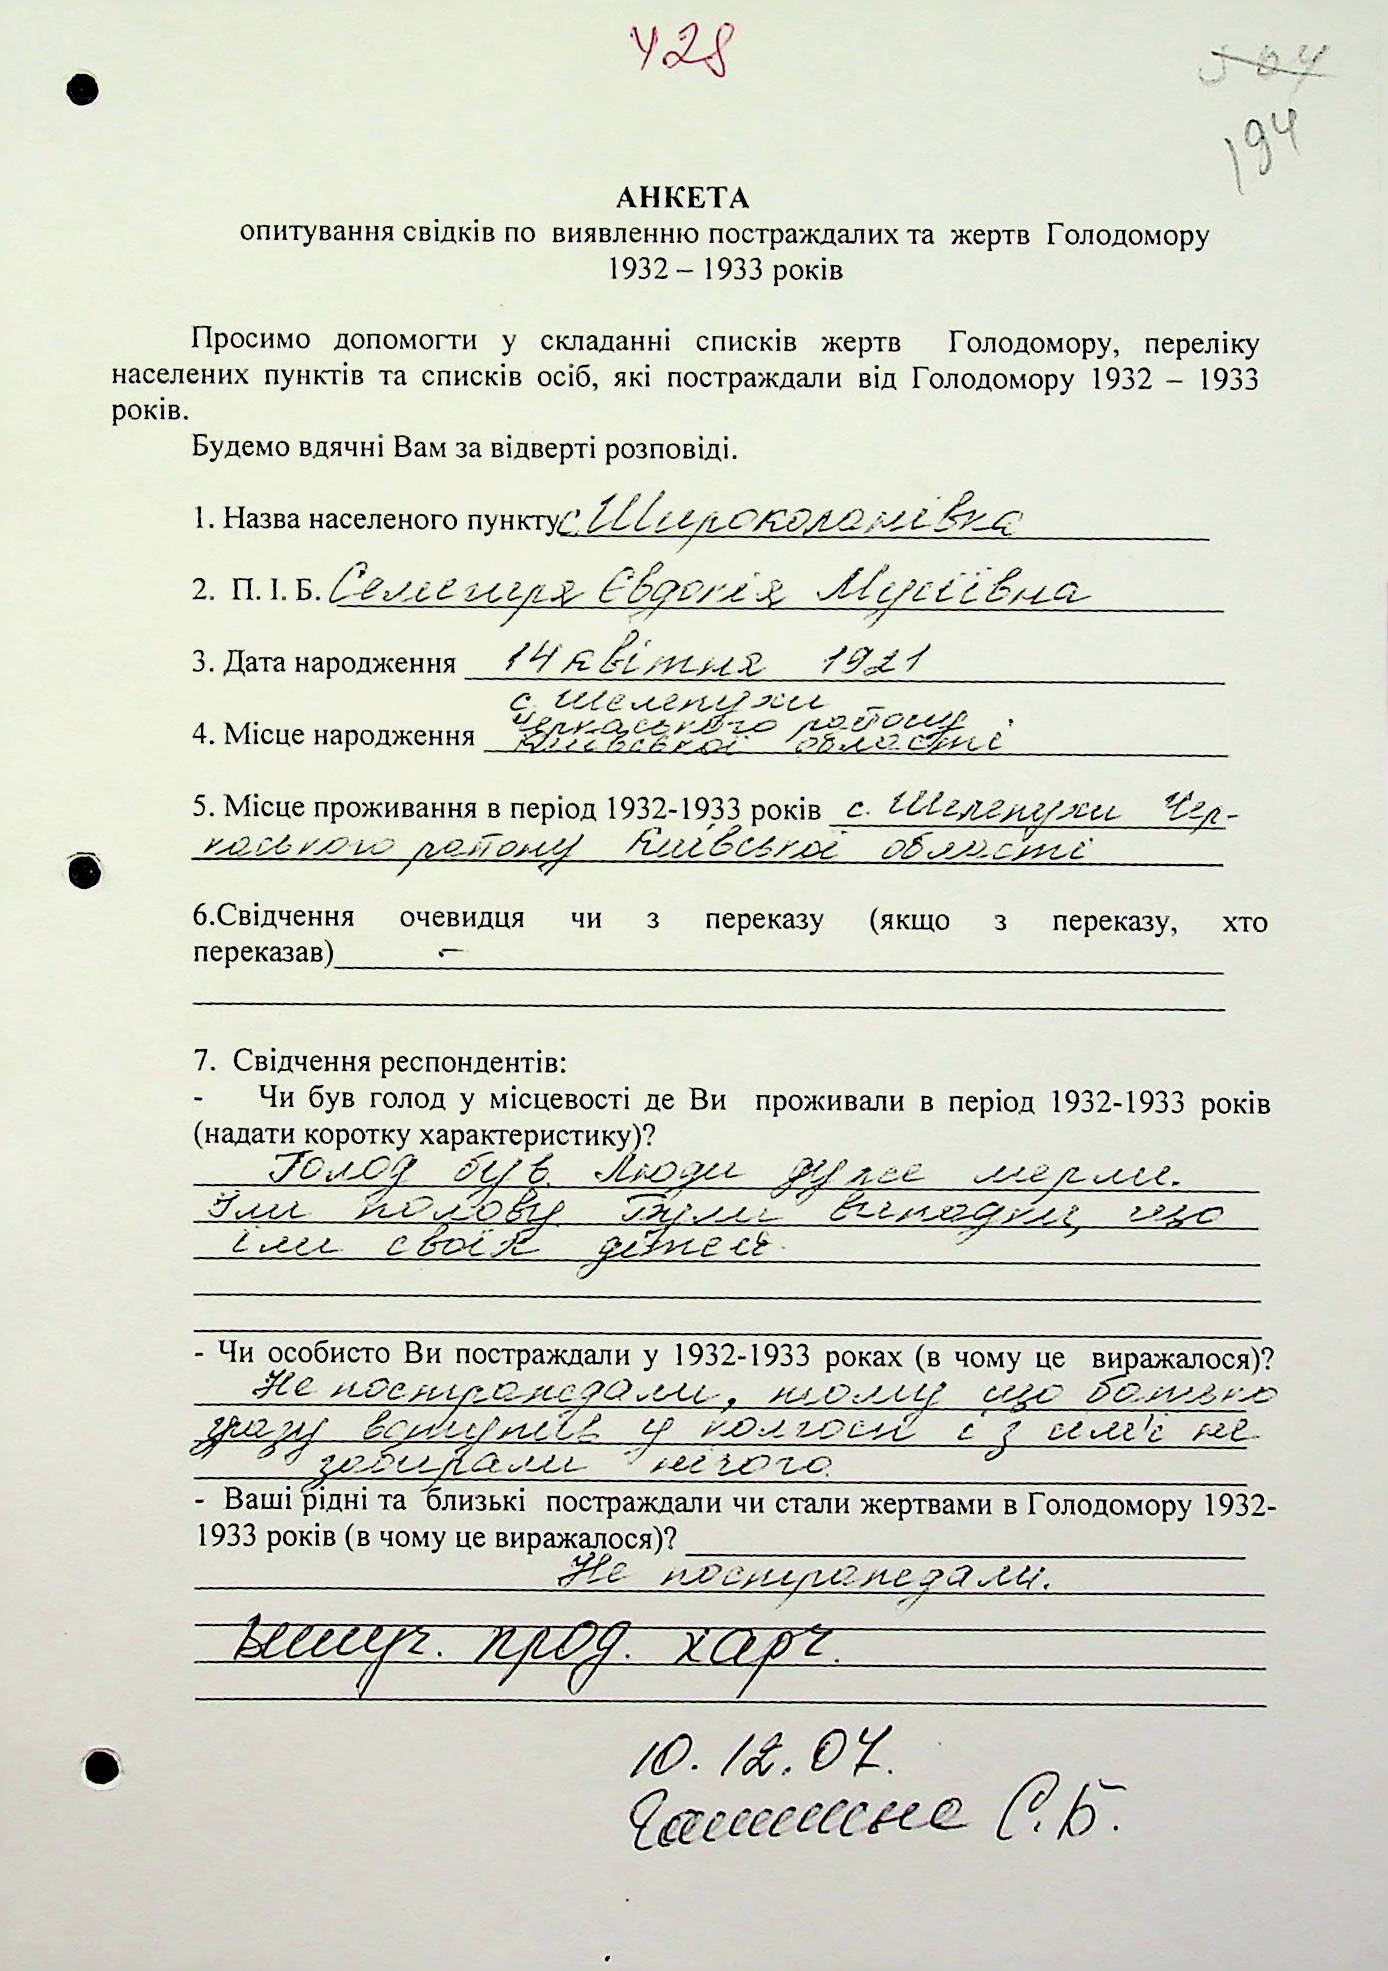 428
504
194
АНКЕТА
опитування свідків по виявленню постраждалих та жертв Голодомору
1932 – 1933 років
Просимо допомогти у складанні списків жертв Голодомору, переліку
населених пунктів та списків осіб, які постраждали від Голодомору 1932 – 1933
років.
Будемо вдячні Вам за відверті розповіді.
1. Назва населеного пункту с. Широколанівка
2. П. І. Б. Семениря Євдокія Мусіївна
3. Дата народження 14 квітня 1921
с. Шелепухи
Черкаського району
4. Місце народження Київської області
5. Місце проживання в період 1932-1933 років с. Шелепухи Чер-
каського району Київської області
6.Свідчення очевидця чи з переказу (якщо з переказу, хто
переказав) –
7. Свідчення респондентів:
- Чи був голод у місцевості де Ви проживали в період 1932-1933 років
(надати коротку характеристику)?
Голод був. Люди дуже мерли.
Їли полову. Були випадки, що
їли своїх дітей.
- Чи особисто Ви постраждали у 1932-1933 роках (в чому це виражалося)?
Не постраждали, тому що батько
зразу вступив у колгосп і з сім'ї не
забирали нічого.
- Ваші рідні та близькі постраждали чи стали жертвами в Голодомору 1932-
1933 років (в чому це виражалося)?
Не постраждали.
вилуч. прод. харч.
10.12.07.
С.Б.